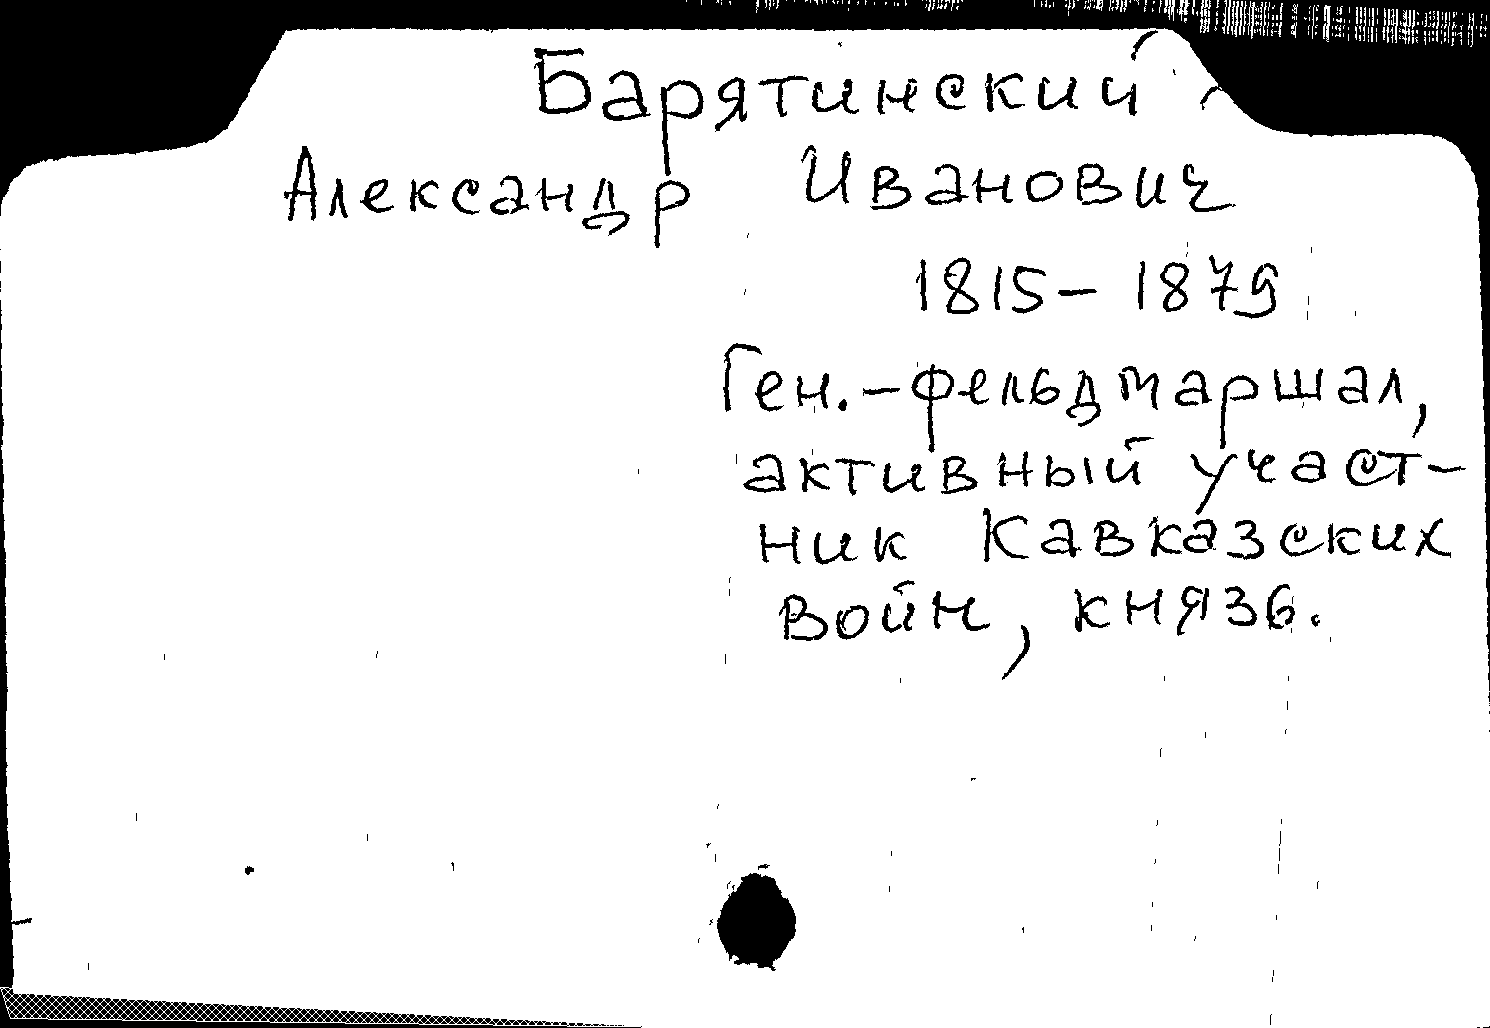 Барятинский
Александр Иванович
1815-1879
Ген.-фельдмаршал,
активный участ-
ник Кавказских
войн, князь.